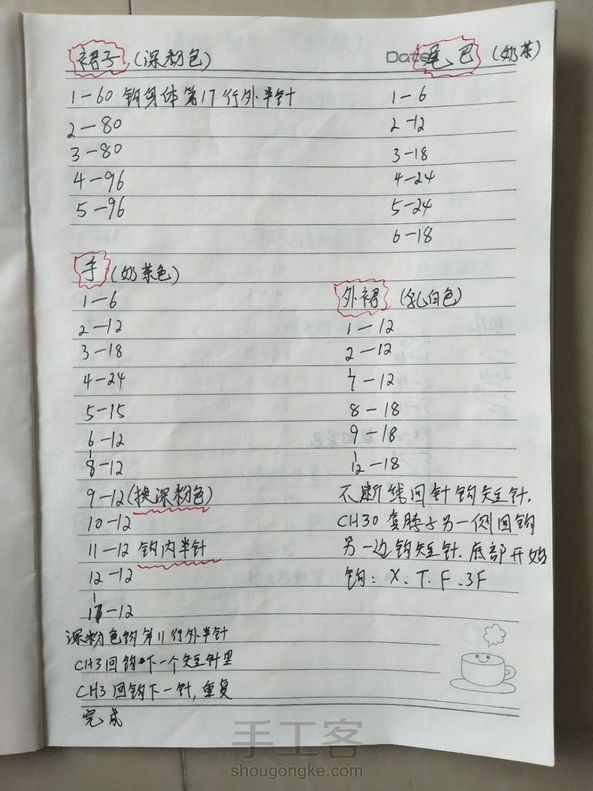 裙子(深粉色)
1-60 钩身体第17行外半针
2-80
3-80
4-96
5-96
Date
尾巴(奶茶)
1-6
2-12
3-18
4-24
5-24
6-18
手(奶茶色)
1-6
2-12
3-18
4-24
5-15
6-12
8-12
9-12(换深粉色)
10-12
11-12 钩内半针
12-12
-12
深粉色钩第11行外半针
CH3回钩下一个短针里
CH3回钩下一针,重复
完成
外裙(乳白色)
1-12
2-12
7-12
8-18
9-18
12-18
不断线回针钩短针.
CH30 套脖子另一侧回钩
另一边钩短针.底部开始
钩:X.T.F.3F
手工客
shougongke.com